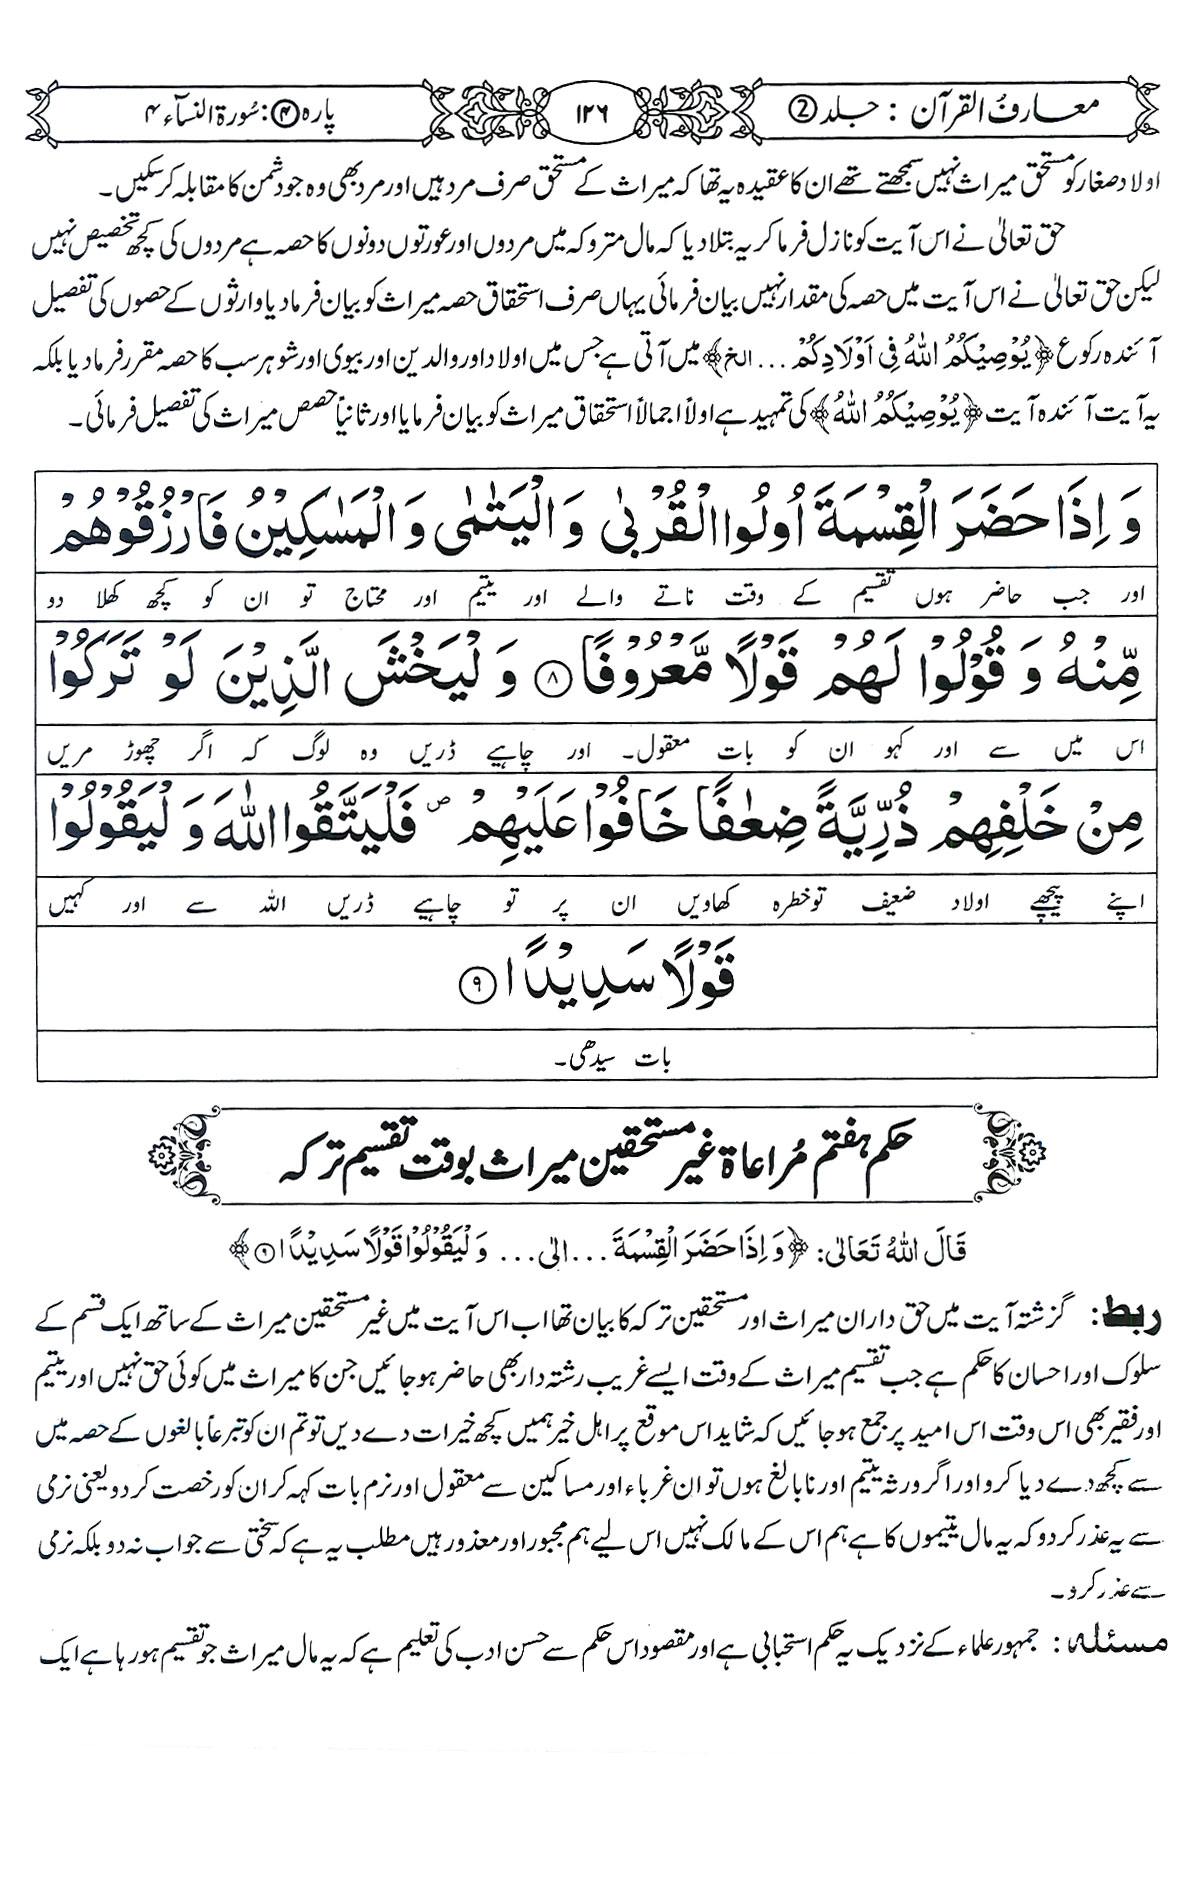 معارفُ القرآن : جلد ②
۱۲۶
پارہ ④: سُورة النسآء ۴
اولاد صغار کو مستحق میراث نہیں سمجھتے تھے ان کا عقیدہ یہ تھا کہ میراث کے مستحق صرف مرد ہیں اور مرد بھی وہ جو دشمن کا مقابلہ کر سکیں۔
حق تعالیٰ نے اس آیت کو نازل فرما کر یہ بتلا دیا کہ مال متروکہ میں مردوں اور عورتوں دونوں کا حصہ ہے مردوں کی کچھ تخصیص نہیں
لیکن حق تعالیٰ نے اس آیت میں حصہ کی مقدار نہیں بیان فرمائی یہاں صرف استحقاق حصہ میراث کو بیان فرما دیا وارثوں کے حصوں کی تفصیل
آئندہ رکوع ﴿یُوْصِیْکُمُ اللّٰهُ فِیْ اَوْلَادِکُمْ ... الخ﴾ میں آتی ہے جس میں اولاد اور والدین اور بیوی اور شوہر سب کا حصہ مقرر فرما دیا بلکہ
یہ آیت آئندہ آیت ﴿یُوْصِیْکُمُ اللّٰهُ﴾ کی تمہید ہے اولاً اجمالاً استحقاق میراث کو بیان فرمایا اور ثانیاً حصص میراث کی تفصیل فرمائی۔
وَ اِذَا حَضَرَ الْقِسْمَةَ اُولُوا الْقُرْبٰى وَ الْیَتٰمٰى وَ الْمَسٰكِیْنُ فَارْزُقُوْهُمْ
اور جب حاضر ہوں تقسیم کے وقت ناتے والے اور یتیم اور محتاج تو ان کو کچھ کھلا دو
مِّنْهُ وَ قُوْلُوْا لَهُمْ قَوْلًا مَّعْرُوْفًا ۸ وَ لْیَخْشَ الَّذِیْنَ لَوْ تَرَكُوْا
اس میں سے اور کہو ان کو بات معقول۔ اور چاہیے ڈریں وہ لوگ کہ اگر چھوڑ مریں
مِنْ خَلْفِهِمْ ذُرِّیَّةً ضِعٰفًا خَافُوْا عَلَیْهِمْ ص فَلْیَتَّقُوا اللّٰهَ وَ لْیَقُوْلُوْا
اپنے پیچھے اولاد ضعیف تو خطرہ کھاویں ان پر تو چاہیے ڈریں اللہ سے اور کہیں
قَوْلًا سَدِیْدًا ۹
بات سیدھی۔
حکم ہفتم مُراعاة غیر مستحقین میراث بوقت تقسیم ترکہ
قَالَ اللّٰهُ تَعَالٰى: ﴿وَ اِذَا حَضَرَ الْقِسْمَةَ ...الی... وَ لْیَقُوْلُوْا قَوْلًا سَدِیْدًا ۹﴾
ربط: گزشتہ آیت میں حق داران میراث اور مستحقین ترکہ کا بیان تھا اب اس آیت میں غیر مستحقین میراث کے ساتھ ایک قسم کے
سلوک اور احسان کا حکم ہے جب تقسیم میراث کے وقت ایسے غریب رشتہ دار بھی حاضر ہو جائیں جن کا میراث میں کوئی حق نہیں اور یتیم
اور فقیر بھی اس وقت اس امید پر جمع ہو جائیں کہ شاید اس موقع پر اہل خیر ہمیں کچھ خیرات دے دیں تو تم ان کو تبرعاً بالغوں کے حصہ میں
سے کچھ دے دیا کرو اور اگر ورثہ یتیم اور نابالغ ہوں تو ان غرباء اور مساکین سے معقول اور نرم بات کہہ کر ان کو رخصت کر دو یعنی نرمی
سے یہ عذر کر دو کہ یہ مال یتیموں کا ہے ہم اس کے مالک نہیں اس لیے ہم مجبور اور معذور ہیں مطلب یہ ہے کہ سختی سے جواب نہ دو بلکہ نرمی
سے عذر کرو۔
مسئلہ: جمہور علماء کے نزدیک یہ حکم استحبابی ہے اور مقصود اس حکم سے حسن ادب کی تعلیم ہے کہ یہ مال میراث جو تقسیم ہو رہا ہے ایک